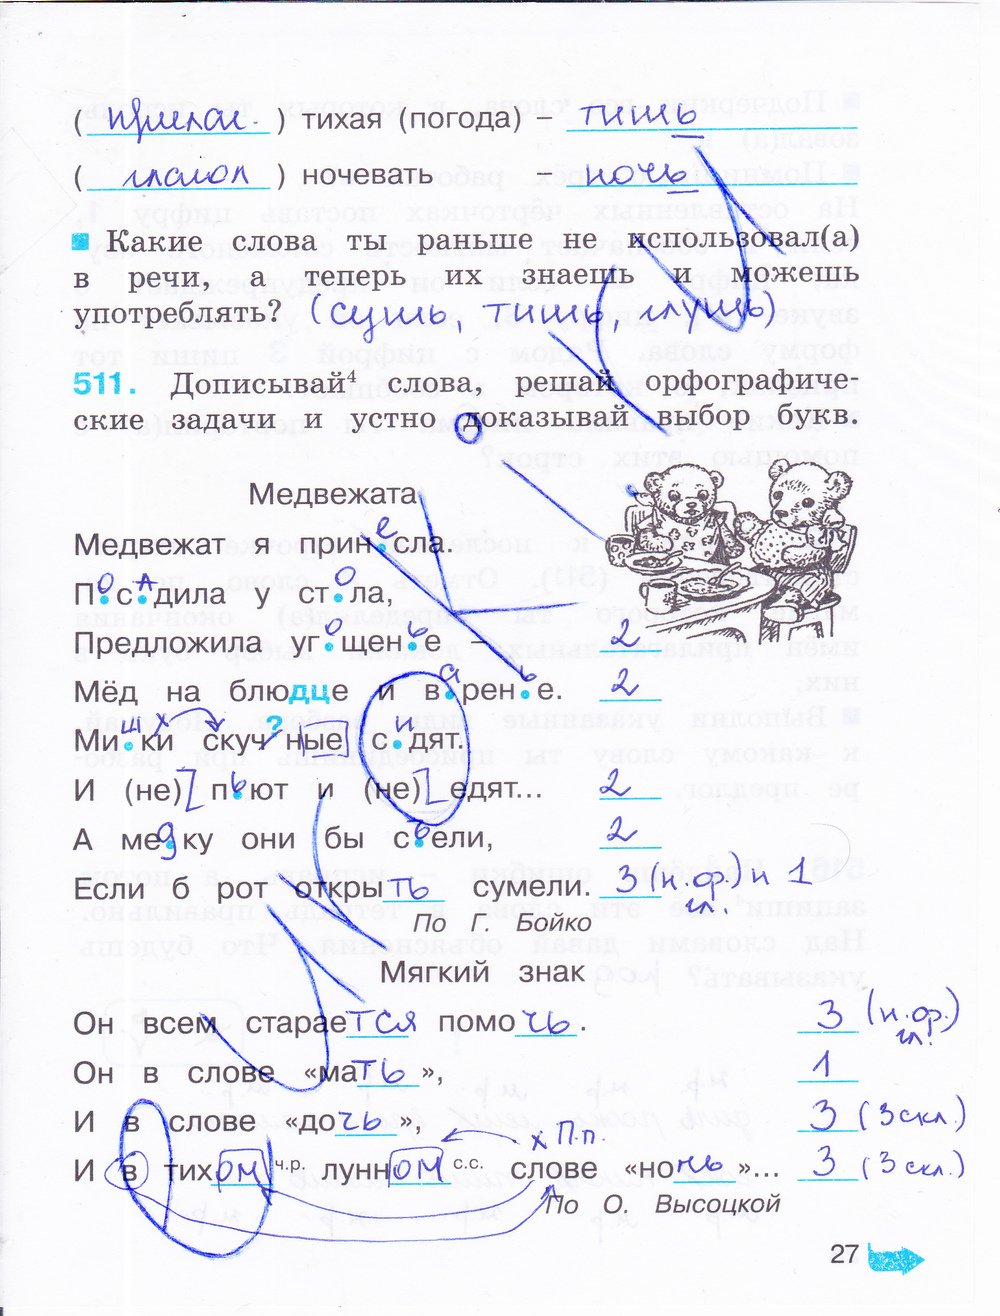 ( прилаг. ) тихая (погода) – тишь
( глагол ) ночевать – ночь
Какие слова ты раньше не использовал(а)
в речи, а теперь их знаешь и можешь
употреблять? (сушь, тишь, глушь)
511. Дописывай⁴ слова, решай орфографиче-
ские задачи и устно доказывай выбор букв.
Медвежата
Медвежат я принесла.
Посадила у стола,
Предложила угощенье – 2
Мёд на блюдце и варенье. 2
Мишки х скуч?ные сидят.
И (не) пьют и (не) едят... 2
А медку они бы съели, 2
Если б рот открыть сумели. 3 (н.ф.) и 1
гл.
По Г. Бойко
Мягкий знак
Он всем старается помочь. 3 (н.ф.)
гл.
Он в слове «мать», 1
И в слове «дочь», 3 (3 скл.)
х П.п.
И в тихом ч.р. лунном с.с. слове «ночь»... 3 (3 скл.)
По О. Высоцкой
27